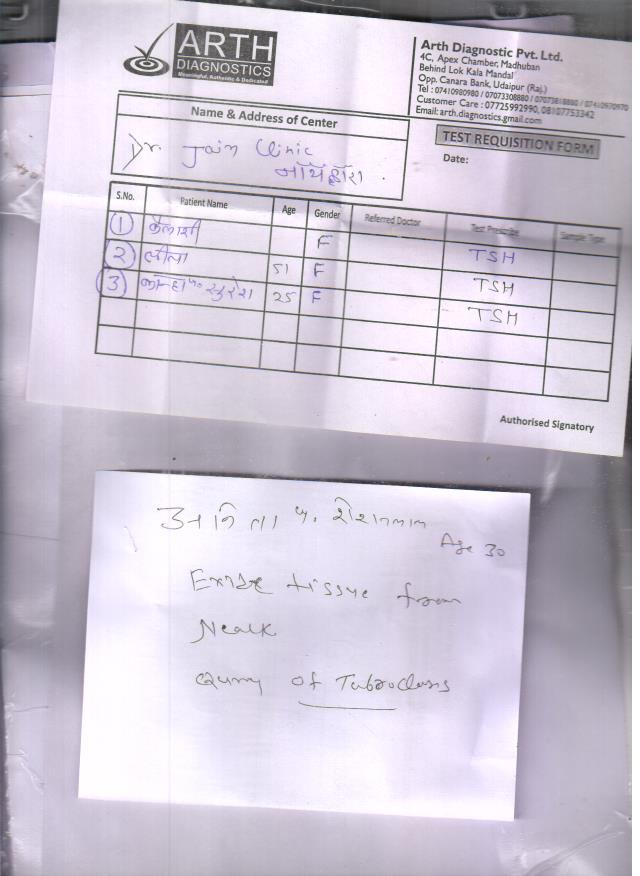 ARTH
DIAGNOSTICS
Meaningful, Authentic & Dedicated
Arth Diagnostic Pvt. Ltd.
4C, Apex Chamber, Madhuban
Behind Lok Kala Mandal
Opp. Canara Bank, Udaipur (Raj.)
Tel : 07410980980 / 07073308880 / 07073818880 / 07410970970
Customer Care : 07725992990, 08107753342
Email: arth.diagnostics.gmail.com
TEST REQUISITION FORM
Date:
Name & Address of Center
Dr Jain Clinic
S.No. Patient Name Age Gender Referred Doctor Test Prescribe Sample Type
1 कैलाशी F TSH
2 लीला 51 F TSH
3 सुरेश 25 F TSH
Authorised Signatory
अनिता
Age 30
tissue from
of